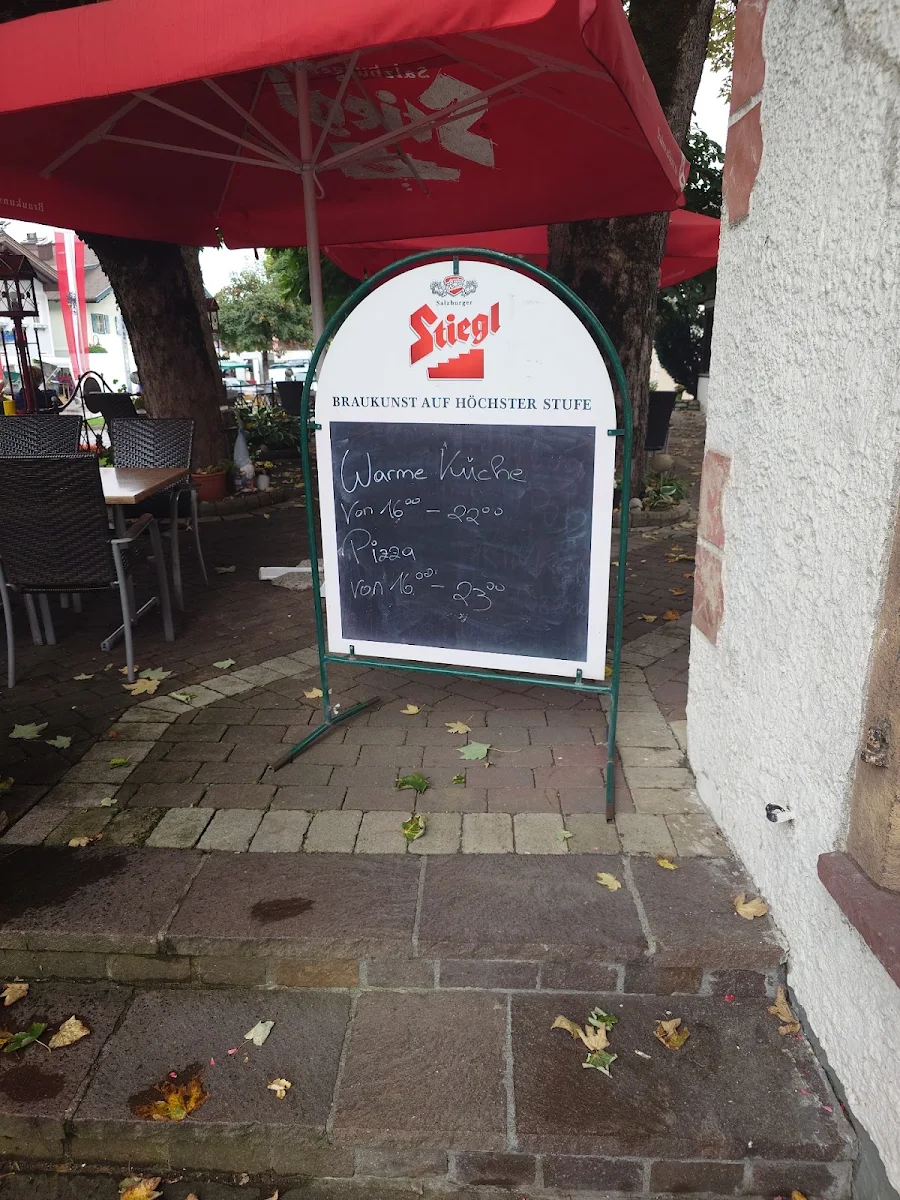 Salzburger
Stiegl
Salzburger
Stiegl
BRAUKUNST AUF HÖCHSTER STUFE
Warme Küche
Von 16⁰⁰ – 22⁰⁰
Pizza
von 16⁰⁰ – 23⁰⁰